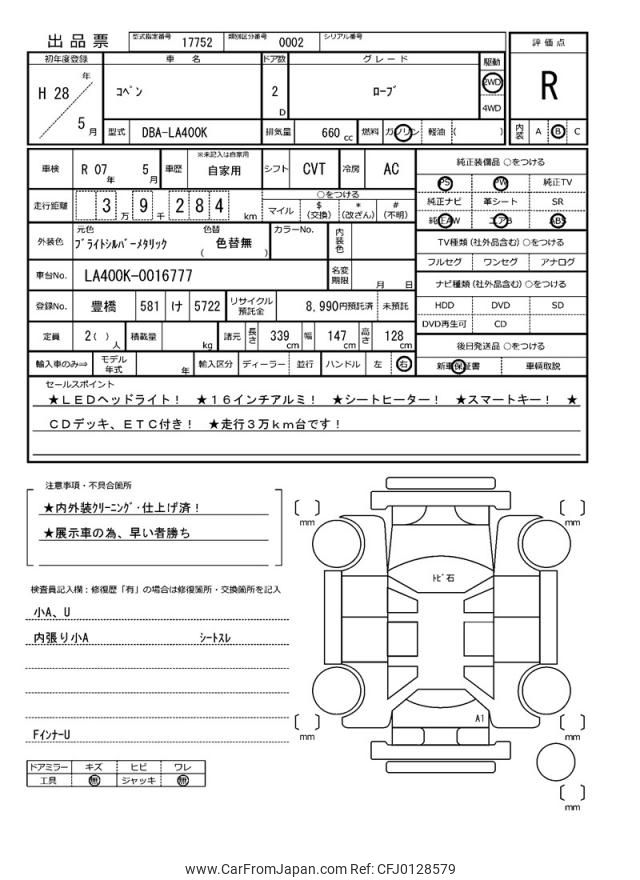 出品票
型式指定番号 17752 類別区分番号 0002 シリアル番号
初年度登録 車名 ドア数 グレード 駆動 評価点
H 28 年 5 月 コペン 2 D ローブ 2WD 4WD R
型式 DBA-LA400K 排気量 660 cc 燃料 ガソリン 軽油 ( ) 内装 A B C
車検 R 07 年 5 月 車歴 ※未記入は自家用 自家用 シフト CVT 冷房 AC 純正装備品 ○をつける
PS PW 純正TV
走行距離 3 万 9 千 2 8 4 km ○をつける 純正ナビ 革シート SR
マイル $ (交換) * (改ざん) # (不明) 純正AW エアB ABS
外装色 元色 ブライトシルバーメタリック 色替 ( 色替無 ) カラーNo. 内装色 TV種類 (社外品含む) ○をつける
フルセグ ワンセグ アナログ
車台No. LA400K-0016777 名変期限 月 日 ナビ種類 (社外品含む) ○をつける
登録No. 豊橋 581 け 5722 リサイクル預託金 8,990円預託済 未預託 HDD DVD SD
DVD再生可 CD
定員 2( ) 人 積載量 kg 諸元 長さ 339 cm 幅 147 cm 高さ 128 cm 後日発送品 ○をつける
輸入車のみ⇒ モデル年式 年 輸入区分 ディーラー 並行 ハンドル 左 右 新車保証書 車輌取説
セールスポイント
★LEDヘッドライト! ★16インチアルミ! ★シートヒーター! ★スマートキー! ★
CDデッキ、ETC付き! ★走行3万km台です!
注意事項・不具合箇所
★内外装クリーニング・仕上げ済!
★展示車の為、早い者勝ち
検査員記入欄:修復歴「有」の場合は修復箇所・交換箇所を記入
小A、U
内張り小A シートスレ
FインナーU
ドアミラー キズ ヒビ ワレ
工具 無 ジャッキ 無
mm
mm
トビ石
A1
mm
mm
mm
www.CarFromJapan.com Ref: CAFJ0128579